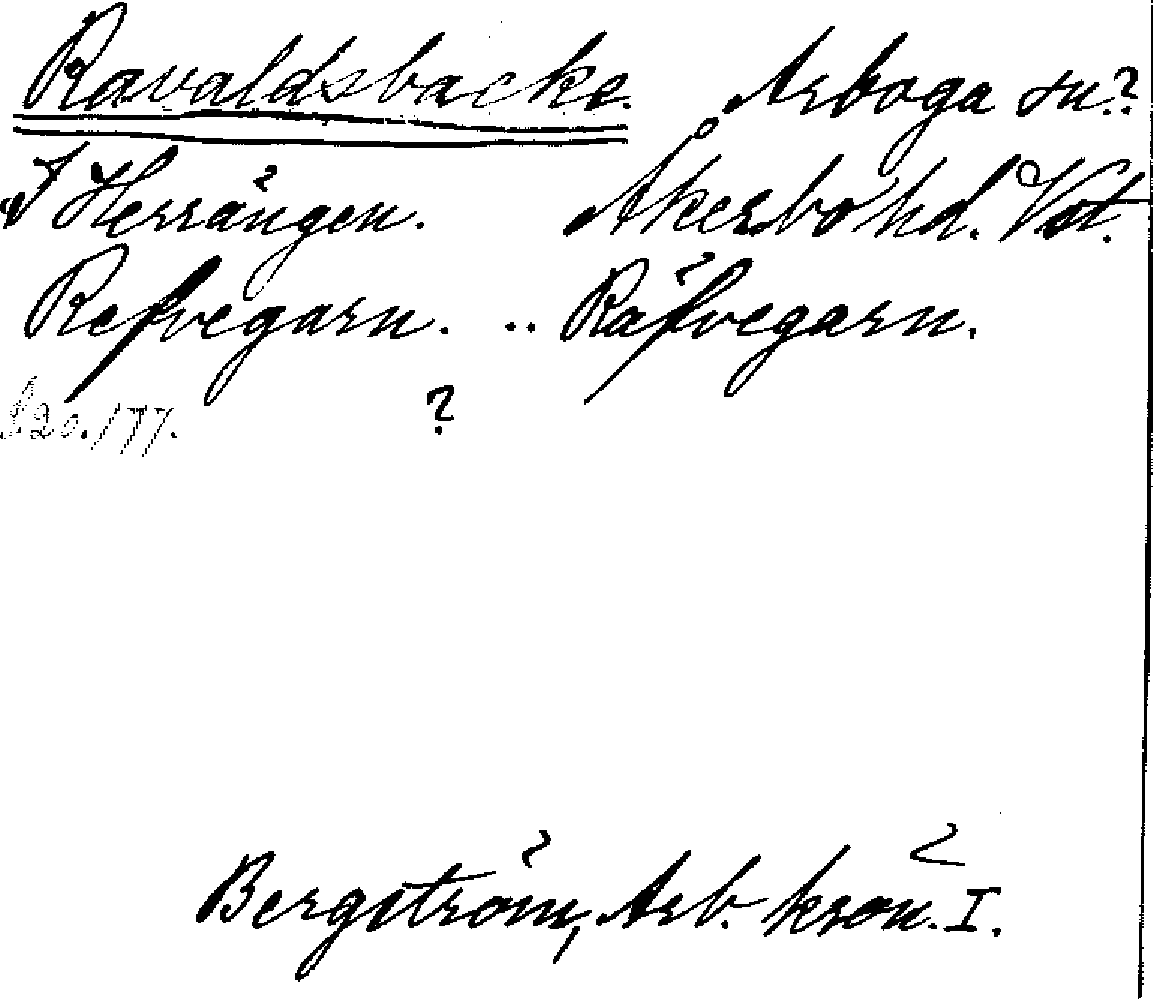 Ravaldsbacke. Arboga sn?
I Herrängen. Åkerbo hd. Vst.
Refvegarn. .. Räfvegarn.
s. 20. 177. ?
Bergström, Arb. krön. I.